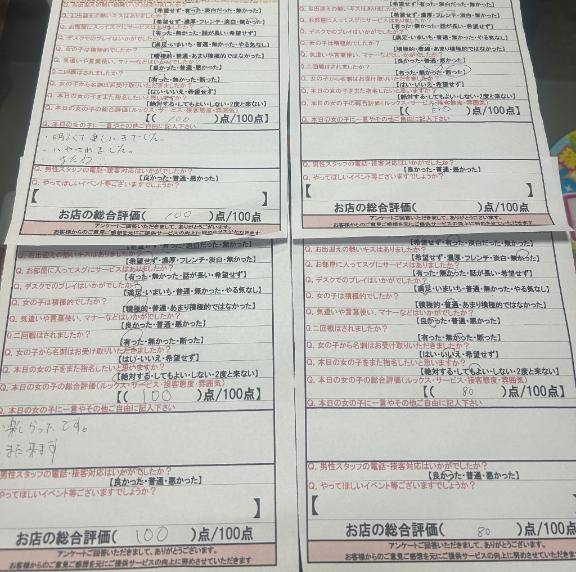 Q. お出迎えの熱いキスはありましたか?
【希望せず・濃厚・フレンチ・淡白・無かった】
Q. お部屋に入ってスグにサービスはありましたか?
【有った・無かった・話が長い・希望せず】
Q. デスクでのプレイはいかがでしたか?
【満足・いまいち・普通・無かった・やる気なし】
Q. 女の子は積極的でしたか?
【積極的・普通・あまり積極的ではなかった】
Q. 気遣いや言葉使い、マナーなどはいかがでしたか?
【良かった・普通・悪かった】
Q. 二回戦はされましたか?
【有った・無かった・断った】
Q. 女の子から名刺はお受け取りいただきましたか?
【はい・いいえ・希望せず】
Q. 本日の女の子をまた指名したいと思いますか?
【絶対する・してもよい・しない・2度と来ない】
Q. 本日の女の子の総合評価(ルックス・サービス・接客態度・雰囲気)
【( 100 )点/100点
Q. 本日の女の子に一言やその他ご自由に記入下さい
Q. 男性スタッフの電話・接客対応はいかがでしたか?
【良かった・普通・悪かった】
Q. やってほしいイベント等ございますでしょうか?
【 】
お店の総合評価( 100 )点/100点
アンケートご回答いただきまして、ありがとうございます。
お客様からのご意見ご感想を元にご提供サービスの向上に努めさせていただきます
【希望せず・濃厚・フレンチ・淡白・無かった】
Q. お部屋に入ってスグにサービスはありましたか?
【有った・無かった・話が長い・希望せず】
Q. デスクでのプレイはいかがでしたか?
【満足・いまいち・普通・無かった・やる気なし】
Q. 女の子は積極的でしたか?
【積極的・普通・あまり積極的ではなかった】
Q. 気遣いや言葉使い、マナーなどはいかがでしたか?
【良かった・普通・悪かった】
Q. 二回戦はされましたか?
【有った・無かった・断った】
Q. 女の子から名刺はお受け取りいただきましたか?
【はい・いいえ・希望せず】
Q. 本日の女の子をまた指名したいと思いますか?
【絶対する・してもよい・しない・2度と来ない】
Q. 本日の女の子の総合評価(ルックス・サービス・接客態度・雰囲気)
【( )点/100点
Q. 本日の女の子に一言やその他ご自由に記入下さい
Q. 男性スタッフの電話・接客対応はいかがでしたか?
【良かった・普通・悪かった】
Q. やってほしいイベント等ございますでしょうか?
【 】
お店の総合評価( )点/100点
アンケートご回答いただきまして、ありがとうございます。
お客様からのご意見ご感想を元にご提供サービスの向上に努めさせていただきます
Q. お出迎えの熱いキスはありましたか?
【希望せず・濃厚・フレンチ・淡白・無かった】
Q. お部屋に入ってスグにサービスはありましたか?
【有った・無かった・話が長い・希望せず】
Q. デスクでのプレイはいかがでしたか?
【満足・いまいち・普通・無かった・やる気なし】
Q. 女の子は積極的でしたか?
【積極的・普通・あまり積極的ではなかった】
Q. 気遣いや言葉使い、マナーなどはいかがでしたか?
【良かった・普通・悪かった】
Q. 二回戦はされましたか?
【有った・無かった・断った】
Q. 女の子から名刺はお受け取りいただきましたか?
【はい・いいえ・希望せず】
Q. 本日の女の子をまた指名したいと思いますか?
【絶対する・してもよい・しない・2度と来ない】
Q. 本日の女の子の総合評価(ルックス・サービス・接客態度・雰囲気)
【( 100 )点/100点
Q. 本日の女の子に一言やその他ご自由に記入下さい
楽しかったです。
また来ます
男性スタッフの電話・接客対応はいかがでしたか?
【良かった・普通・悪かった】
やってほしいイベント等ございますでしょうか?
】
お店の総合評価( 100 )点/100点
アンケートご回答いただきまして、ありがとうございます。
お客様からのご意見ご感想を元にご提供サービスの向上に努めさせていただきます
【希望せず・有った・淡白だった・無かった】
Q. お出迎えの熱いキスはありましたか?
【希望せず・濃厚・フレンチ・淡白・無かった】
Q. お部屋に入ってスグにサービスはありましたか?
【有った・無かった・話が長い・希望せず】
Q. デスクでのプレイはいかがでしたか?
【満足・いまいち・普通・無かった・やる気なし】
Q. 女の子は積極的でしたか?
【積極的・普通・あまり積極的ではなかった】
Q. 気遣いや言葉使い、マナーなどはいかがでしたか?
【良かった・普通・悪かった】
Q. 二回戦はされましたか?
【有った・無かった・断った】
Q. 女の子から名刺はお受け取りいただきましたか?
【はい・いいえ・希望せず】
Q. 本日の女の子をまた指名したいと思いますか?
【絶対する・してもよい・しない・2度と来ない】
Q. 本日の女の子の総合評価(ルックス・サービス・接客態度・雰囲気)
【( 80 )点/100点
Q. 本日の女の子に一言やその他ご自由に記入下さい
Q. 男性スタッフの電話・接客対応はいかがでしたか?
【良かった・普通・悪かった】
Q. やってほしいイベント等ございますでしょうか?
【 】
お店の総合評価( 80 )点/100点
アンケートご回答いただきまして、ありがとうございます。
お客様からのご意見ご感想を元にご提供サービスの向上に努めさせていただきます